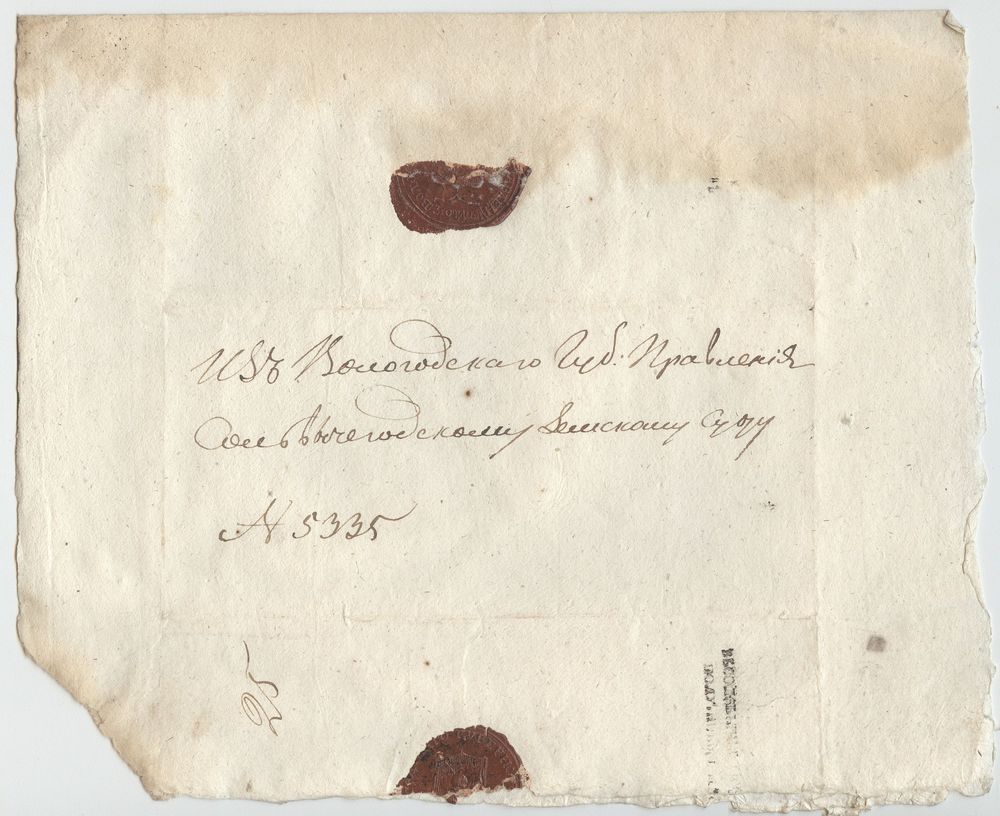 Изъ Вологодскаго Губ. Правленія
Сольвычегодскому Земскому Суду
N 5335
25